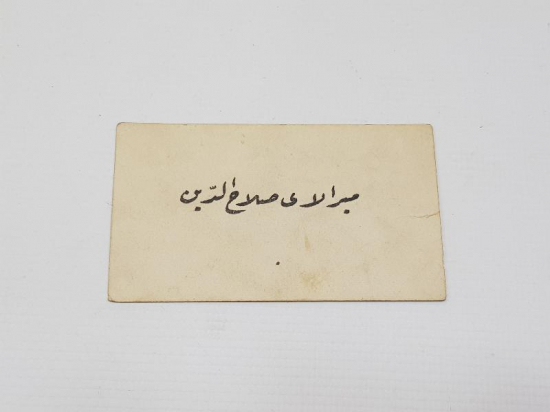 ميرالاى صلاح الدّين